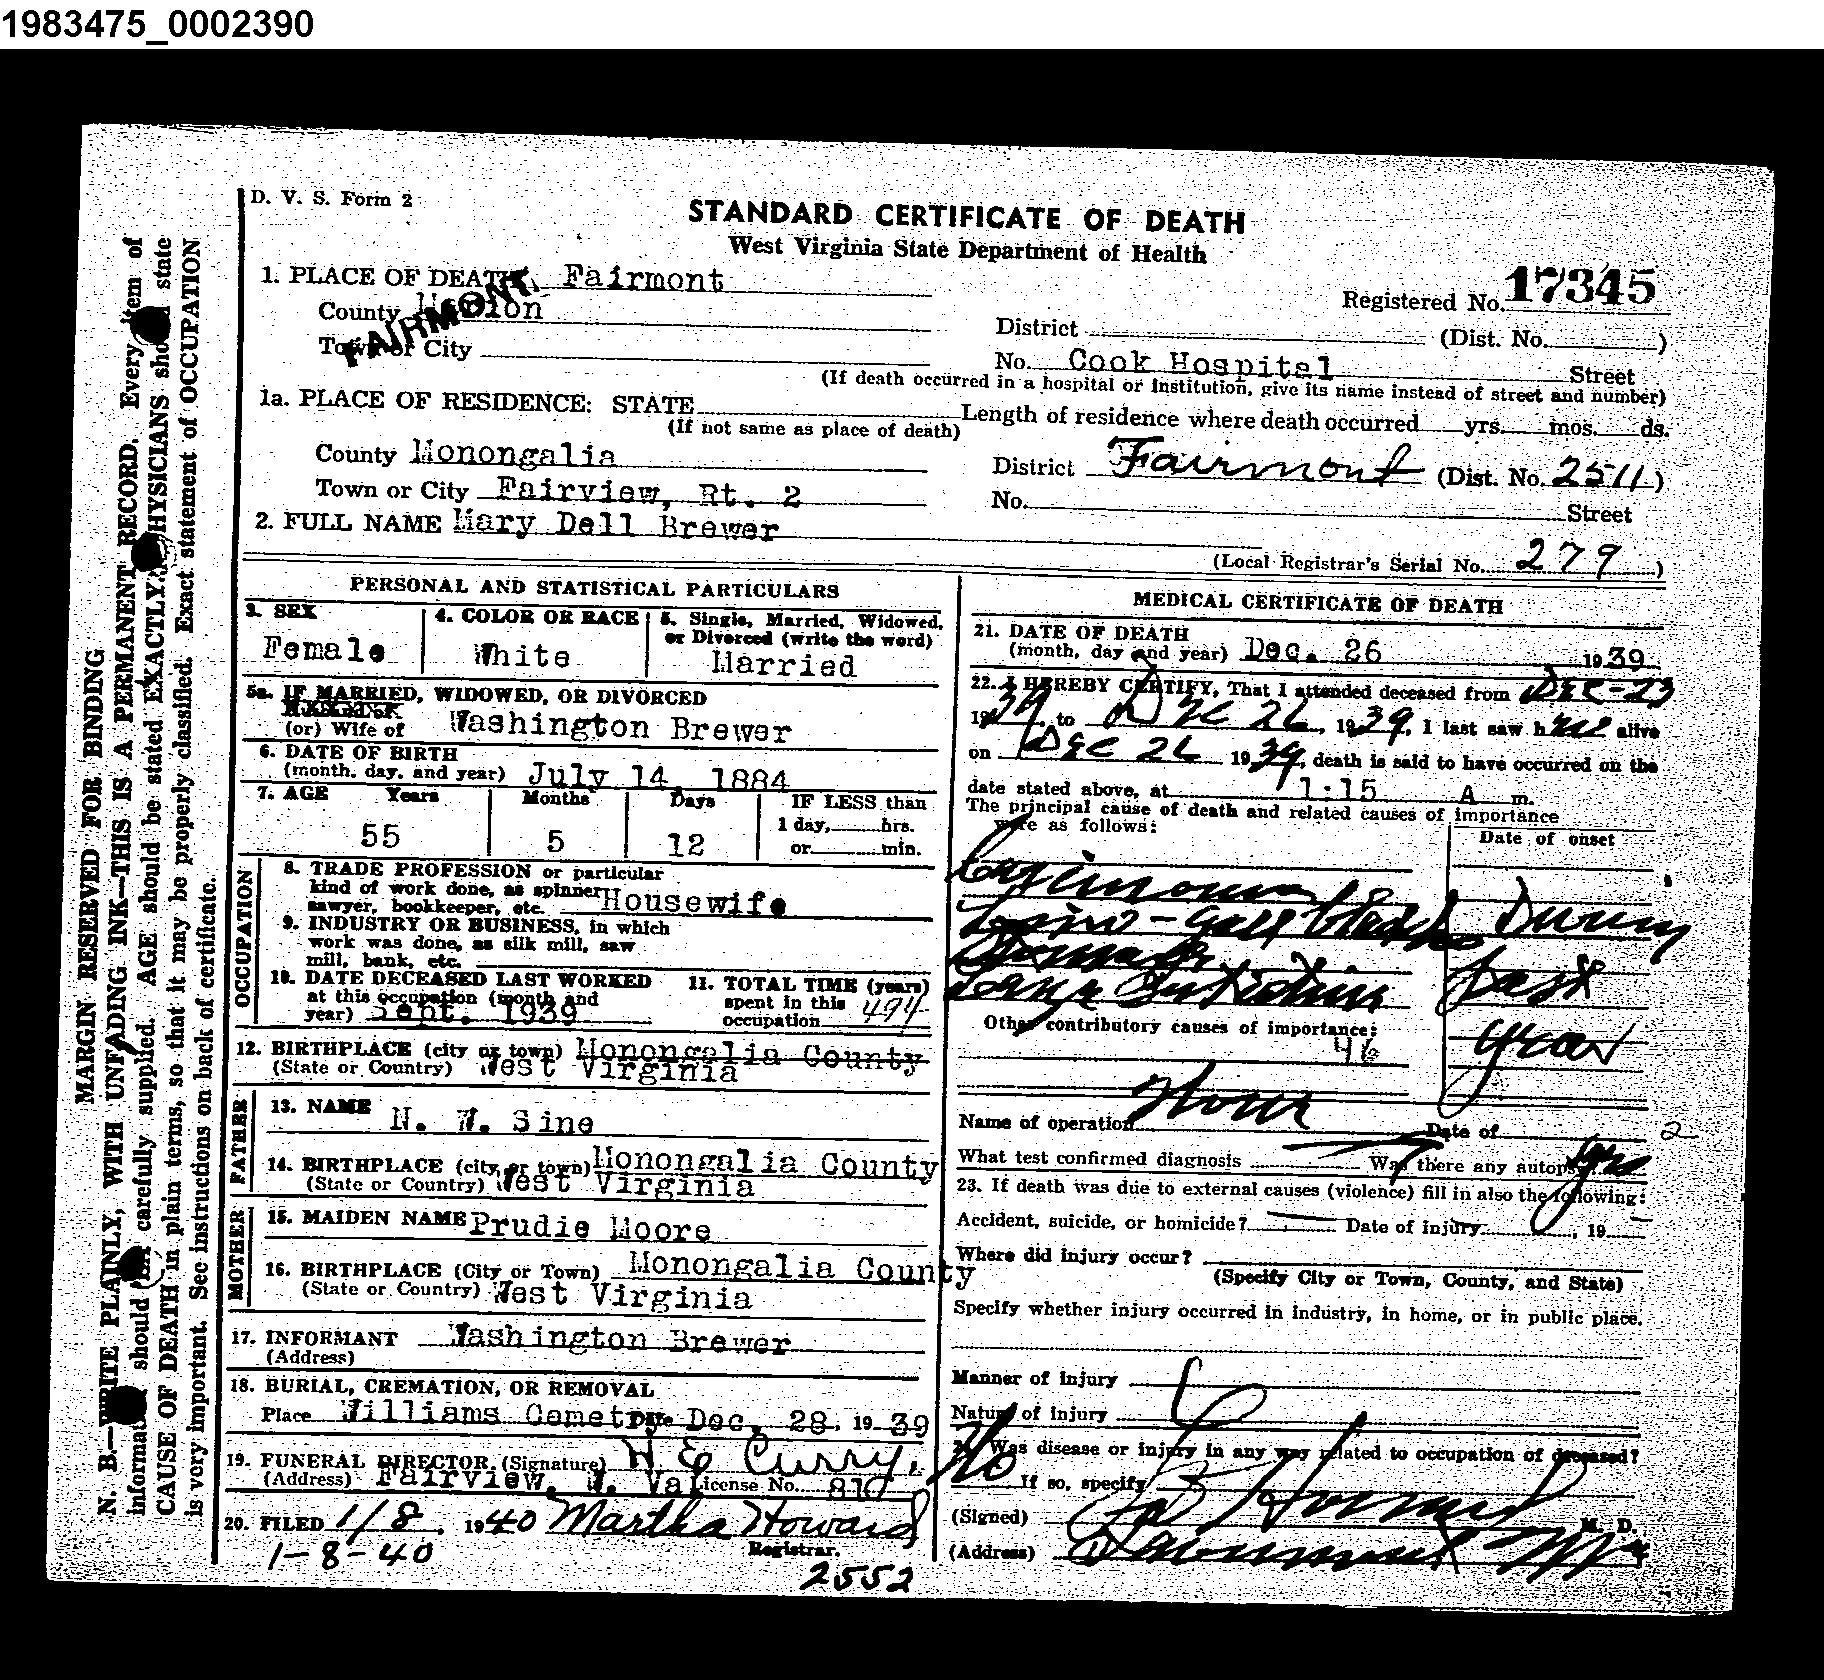 1983475_0002390
D. V. S. Form 2
STANDARD CERTIFICATE OF DEATH
West Virginia State Department of Health
17345
1. PLACE OF DEATH Fairmont
Registered No.
County Marion
FAIRMONT
District (Dist. No. )
Town or City
No. Cook Hospital Street
(If death occurred in a hospital or institution, give its name instead of street and number)
1a. PLACE OF RESIDENCE: STATE
Length of residence where death occurred yrs. mos. ds.
(If not same as place of death)
County Monongalia
District Fairmont (Dist. No. 2511)
Town or City Fairview, Rt. 2
No. Street
2. FULL NAME Mary Dell Brewer
(Local Registrar's Serial No. 279)
PERSONAL AND STATISTICAL PARTICULARS
3. SEX
Female
4. COLOR OR RACE
White
5. Single, Married, Widowed,
or Divorced (write the word)
Married
5a. IF MARRIED, WIDOWED, OR DIVORCED
(or) Wife of Washington Brewer
6. DATE OF BIRTH
(month, day, and year) July 14, 1884
7. AGE Years Months Days IF LESS than
1 day, hrs.
or min.
55 5 12
OCCUPATION
8. TRADE PROFESSION or particular
kind of work done, as spinner
sawyer, bookkeeper, etc. Housewife
9. INDUSTRY OR BUSINESS, in which
work was done, as silk mill, saw
mill, bank, etc.
10. DATE DECEASED LAST WORKED
at this occupation (month and
year) Sept. 1939
11. TOTAL TIME (years)
spent in this
occupation
12. BIRTHPLACE (city or town) Monongalia County
(State or Country) West Virginia
FATHER
13. NAME N. W. Sine
14. BIRTHPLACE (city or town) Monongalia County
(State or Country) West Virginia
MOTHER
15. MAIDEN NAME Prudie Moore
16. BIRTHPLACE (City or Town) Monongalia County
(State or Country) West Virginia
17. INFORMANT Washington Brewer
(Address)
18. BURIAL, CREMATION, OR REMOVAL
Place Williams Cemetry Date Dec. 28, 19 39
19. FUNERAL DIRECTOR. (Signature) H E Curry,
(Address) Fairview, W. Va License No. 810
20. FILED 1/8, 1940 Martha Howard
Registrar.
1-8-40
2552
MEDICAL CERTIFICATE OF DEATH
21. DATE OF DEATH
(month, day and year) Dec. 26 1939
22. I HEREBY CERTIFY, That I attended deceased from Dec-23
1939, to Dec 26, 1939, I last saw her alive
on Dec 26 1939, death is said to have occurred on the
date stated above, at 1:15 A m.
The principal cause of death and related causes of importance
were as follows:
Date of onset
Carcinoma
gall bladder During
Stomach past
Large Intestine year
Other contributory causes of importance:
46
Name of operation None Date of
2
What test confirmed diagnosis Was there any autopsy yes
23. If death was due to external causes (violence) fill in also the following:
Accident, suicide, or homicide? Date of injury , 19
Where did injury occur?
(Specify City or Town, County, and State)
Specify whether injury occurred in industry, in home, or in public place.
Manner of injury
Nature of injury
24. Was disease or injury in any way related to occupation of deceased?
No If so, specify
(Signed) M. D.
(Address)
MARGIN RESERVED FOR BINDING
N. B.—WRITE PLAINLY, WITH UNFADING INK—THIS IS A PERMANENT RECORD. Every item of
information should be carefully supplied. AGE should be stated EXACTLY. PHYSICIANS should state
CAUSE OF DEATH in plain terms, so that it may be properly classified. Exact statement of OCCUPATION
is very important. See instructions on back of certificate.